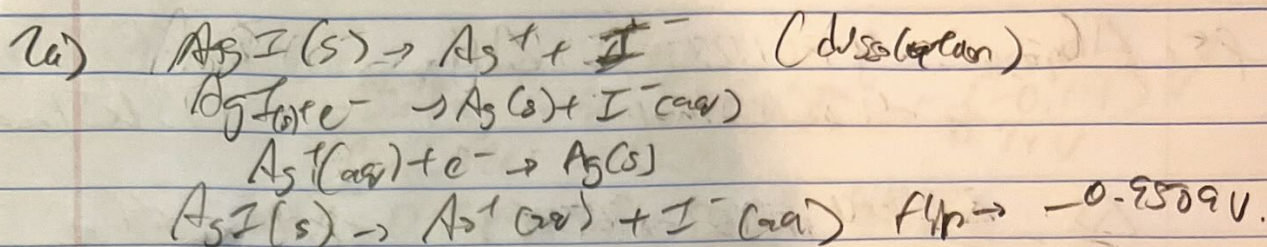 2a) AgI(s) → Ag⁺ + I⁻ (dissolution)
AgI(s)+e⁻ → Ag(s) + I⁻(aq)
Ag⁺(aq) + e⁻ → Ag(s)
AgI(s) → Ag⁺(aq) + I⁻(aq) flip → -0.9509V.